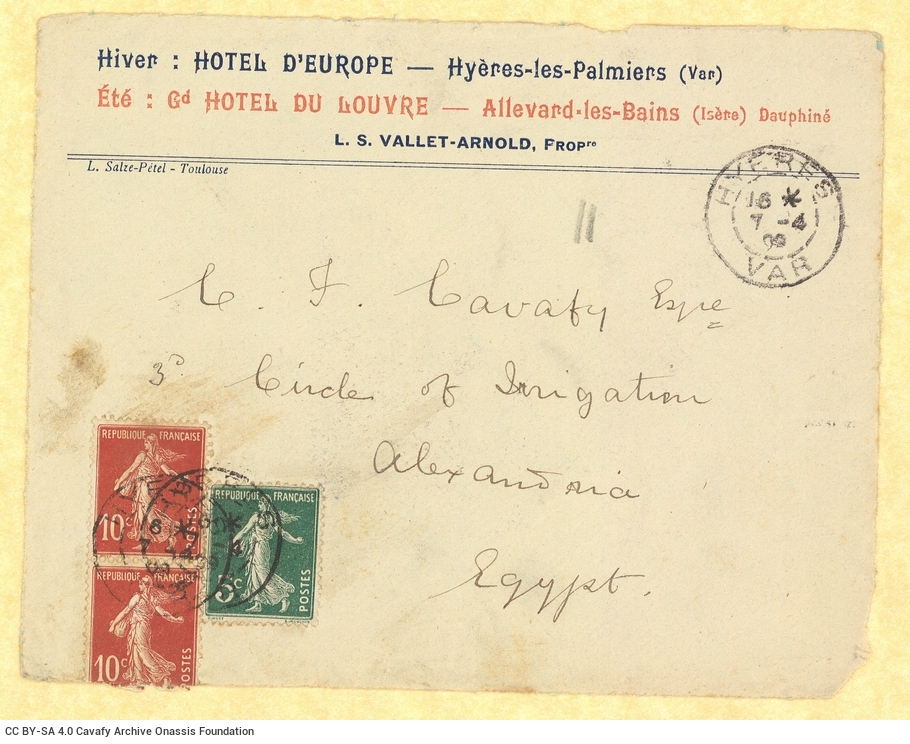 Hiver : HOTEL D'EUROPE — Hyères-les-Palmiers (Var)
Été : Gd HOTEL DU LOUVRE — Allevard-les-Bains (Isère) Dauphiné
L. S. VALLET-ARNOLD, Propre
L. Salze-Pétel - Toulouse
HYERES
16 *
7 -4
09
VAR
11
C. F. Cavafy Esqre
3D Circle of Irrigation
Alexandria
Egypt.
REPUBLIQUE FRANÇAISE
10c
POSTES
REPUBLIQUE FRANÇAISE
5c
POSTES
REPUBLIQUE FRANÇAISE
10c
POSTES
CC BY-SA 4.0 Cavafy Archive Onassis Foundation